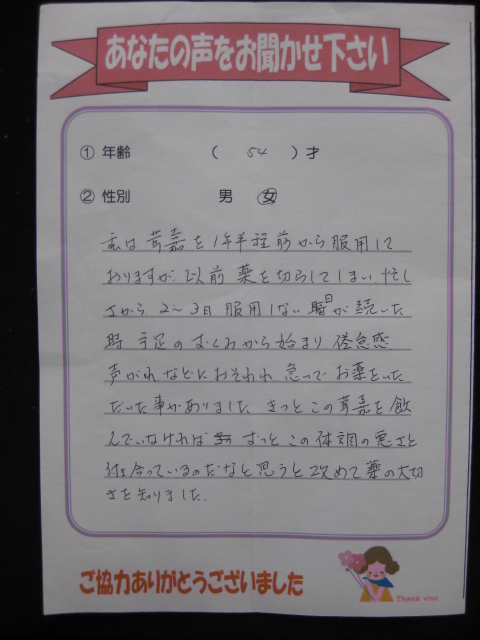 あなたの声をお聞かせ下さい
① 年齢 ( 54 ) 才
② 性別 男 女
私は 嘉を1年半程前から服用して
おりますが、以前薬を切らしてしまい、忙し
さから 2～3日服用しない時が続いた
時 手足のむくみから始まり、倦怠感
声がれなどにおそわれ 急いで お薬をいた
だいた事がありました。きっとこの 嘉を飲
んでいなければ ずっと この体調の悪さと
付き合っているのだなと思うと改めて薬の大切
さを知りました。
ご協力ありがとうございました
Thank you